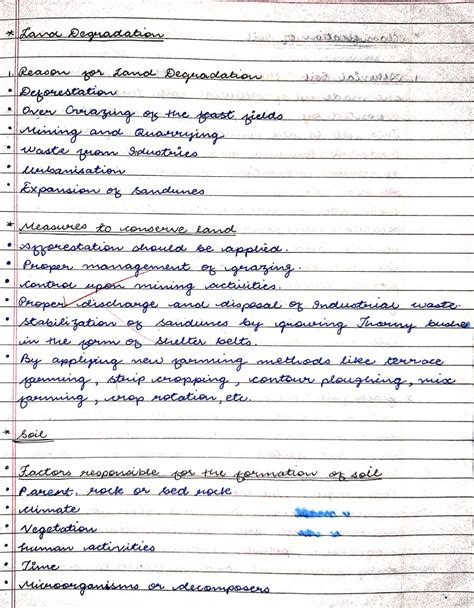 * Land Degradation
1. Reason for Land Degradation
• Deforestation
• Over Grazing of the feast fields
• Mining and Quarrying
• Waste from Industries
• Urbanisation
• Expansion of Sandunes
* Measures to conserve land
• Afforestation should be applied.
• Proper management of grazing.
• Control upon mining activities.
• Proper discharge and disposal of Industrial waste.
• Stabilization of sandunes by growing Thorny bushe
in the form of shelter belts.
• By applying new farming methods like terrace
farming, strip cropping, contour ploughing, mix
farming, crop rotation, etc.
* Soil
• Factors responsible for the formation of soil
• Parent, rock or bed rock
• Climate
• Vegetation
• Human activities
• Time
• Microorganisms or decomposers